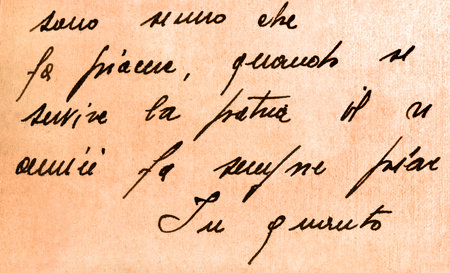 sono sicuro che
fa piacere, quando si
servire la patria il ri
amici fa sempre piac
In quanto